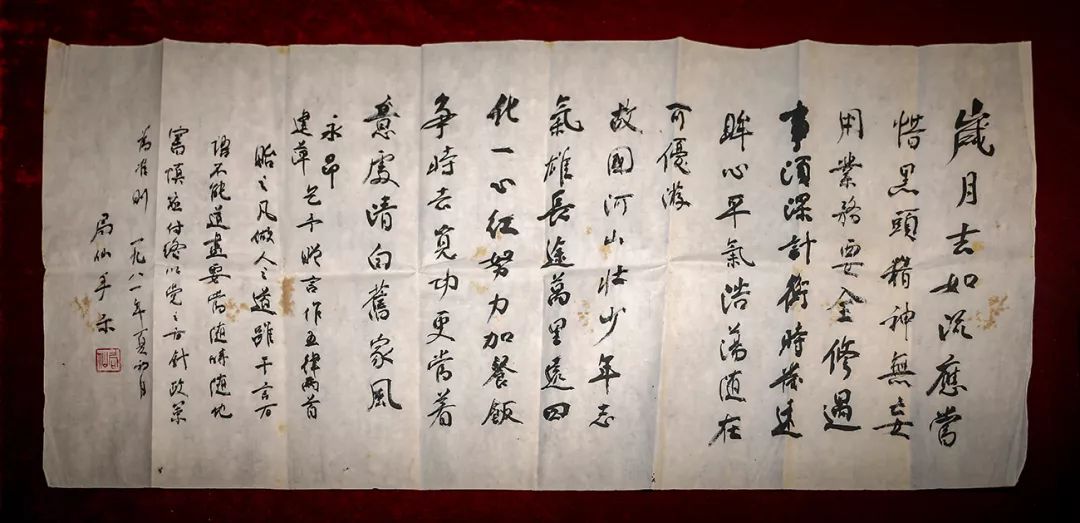 歲月去如流應當
惜黑頭精神無妄
用業務要全修遇
事須深計衡時莫迷
眸心平氣浩蕩隨在
可優游
故國河山壯少年志
氣雄長途萬里遠四
化一心紅努力加餐飯
爭時去寬功更當着
意處清白舊家風
永昂
建華乞予贈言作五律兩首
貽之凡做人之道雖千言万
語不能道盡要當隨時隨地
審慎應付終以党之方針政策
為准則 一九八一年夏初月
局仙手示